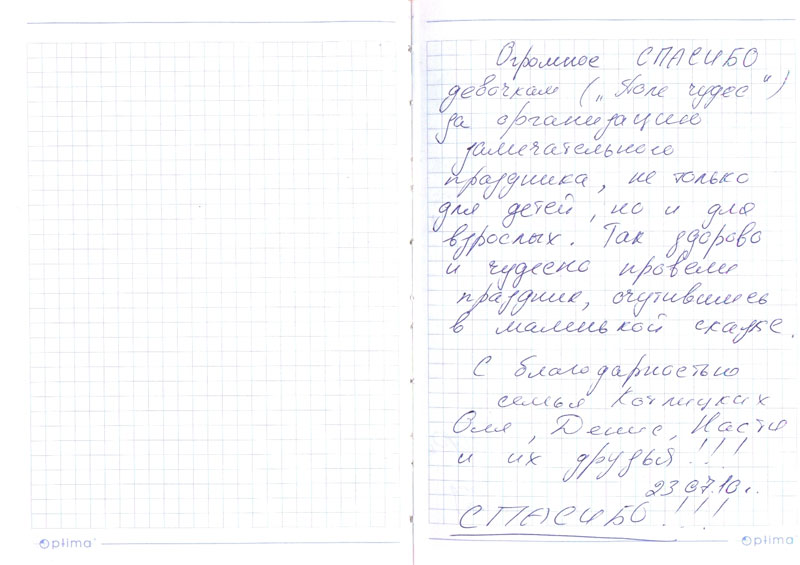 Огромное СПАСИБО
девочкам („Поле чудес")
за организацию
замечательного
праздника, не только
для детей, но и для
взрослых. Так здорово
и чудесно провели
праздник, очутившись
в маленькой сказке.
С благодарностью
семья
Оля, Денис, Настя
и их друзья!!!
23.07.10г.
СПАСИБО!!!!
Optima
Optima